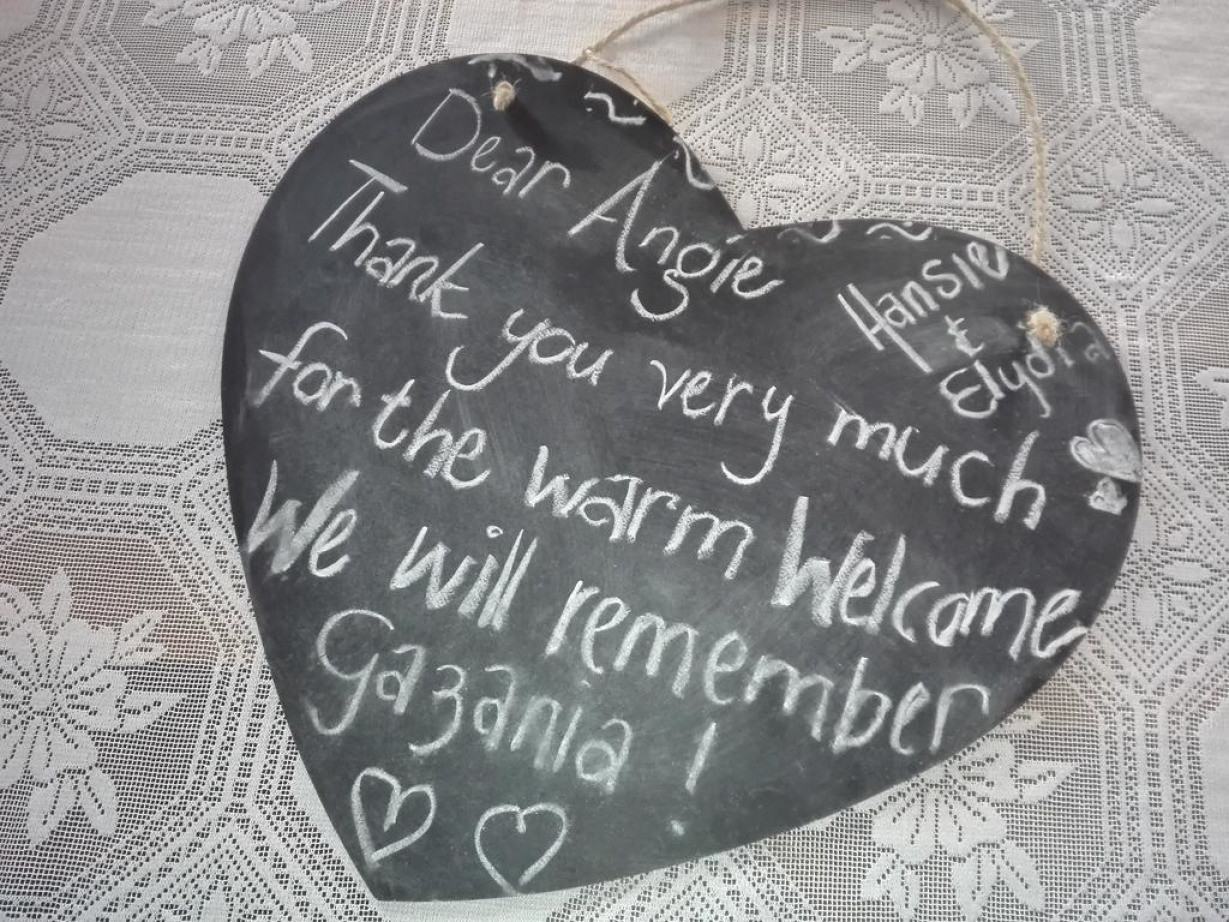 Dear Angie
Thank you very much
for the warm Welcome
We will remember
Gazania !
Hansie
&
Elydia